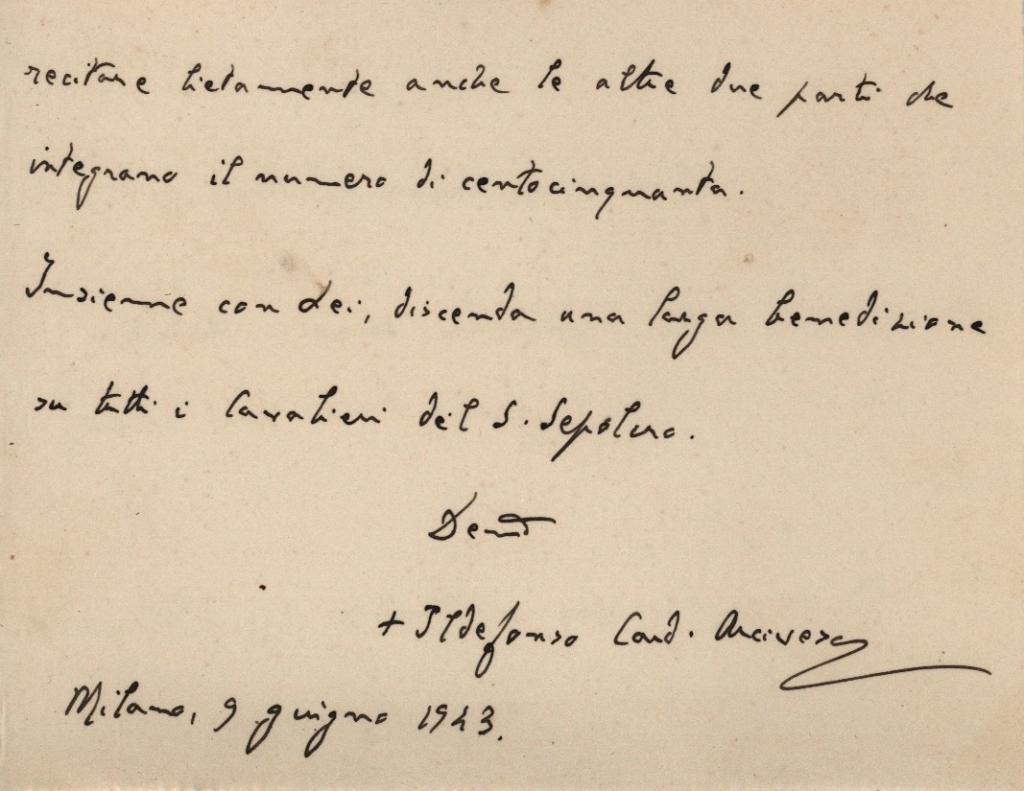 recitare lietamente anche le altre due parti che
integrano il numero di centocinquanta.
Insieme con Lei, discenda una larga benedizione
su tutti i Cavalieri del S. Sepolcro.
Dev̄
+ Ildefonso Card. Arcivesc
Milano, 9 giugno 1943.